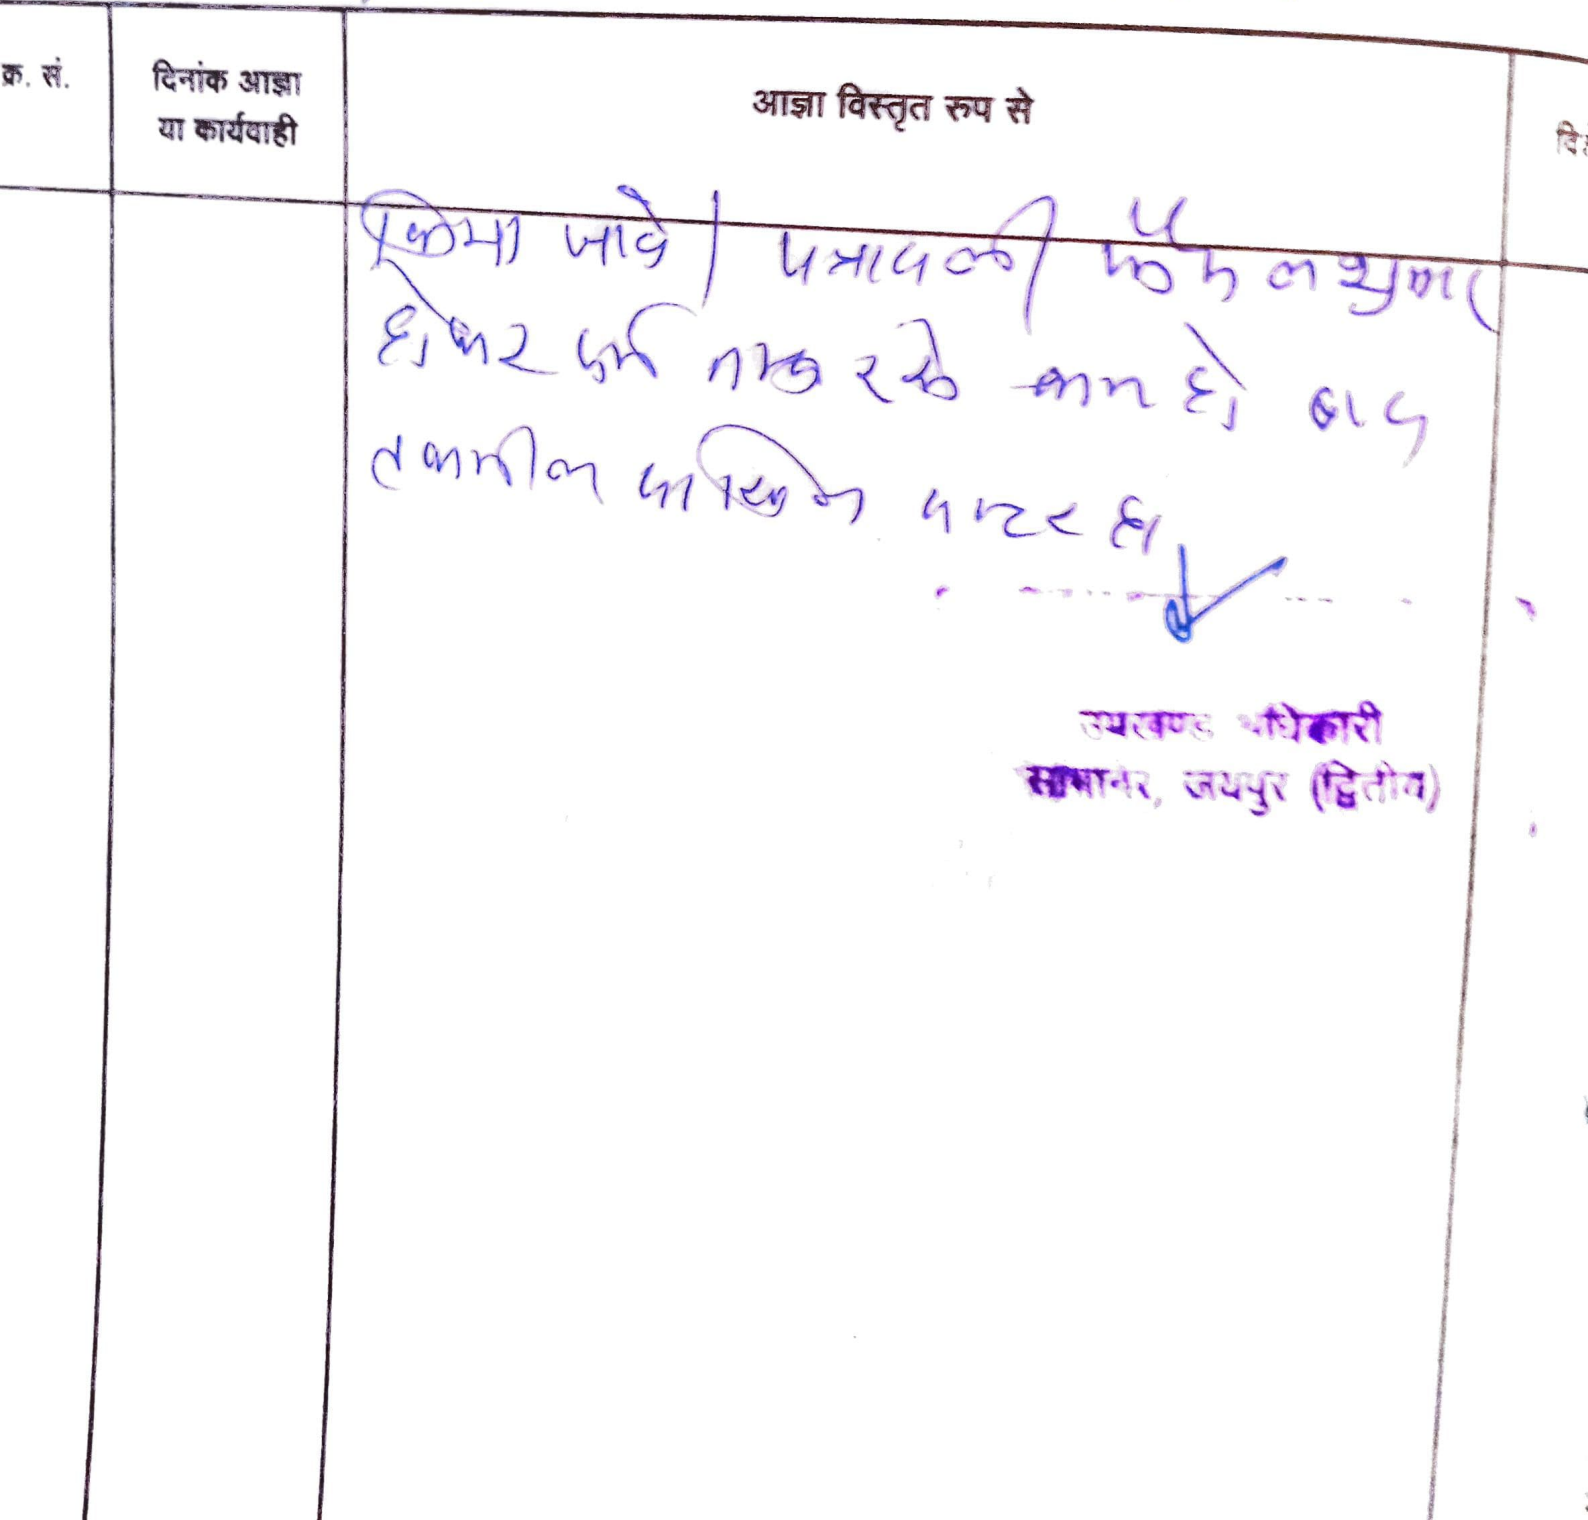 क्र. सं.
दिनांक आज्ञा
या कार्यवाही
आज्ञा विस्तृत रूप से
किया जावे। पत्रावली फैसलशुमार
होकर फर्म नम्बर से कम हो बाद
तकमील दाखिल दफ्तर हो
उपखण्ड अधिकारी
जयपुर (द्वितीय)